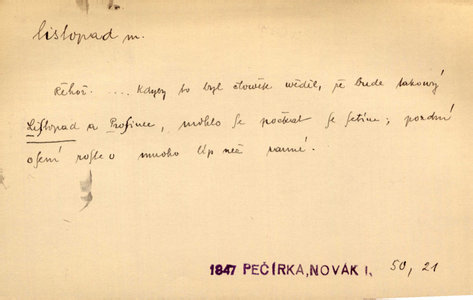 listopad m.
Řehoř. .... Kdyby to byl člověk věděl, že bude takový
Listopad a Prosinec, mohlo se počkat se setím; pozdní
osení rostlo o mnoho líp než ranné.
1847 PEČÍRKA, NOVÁK I. 50, 21